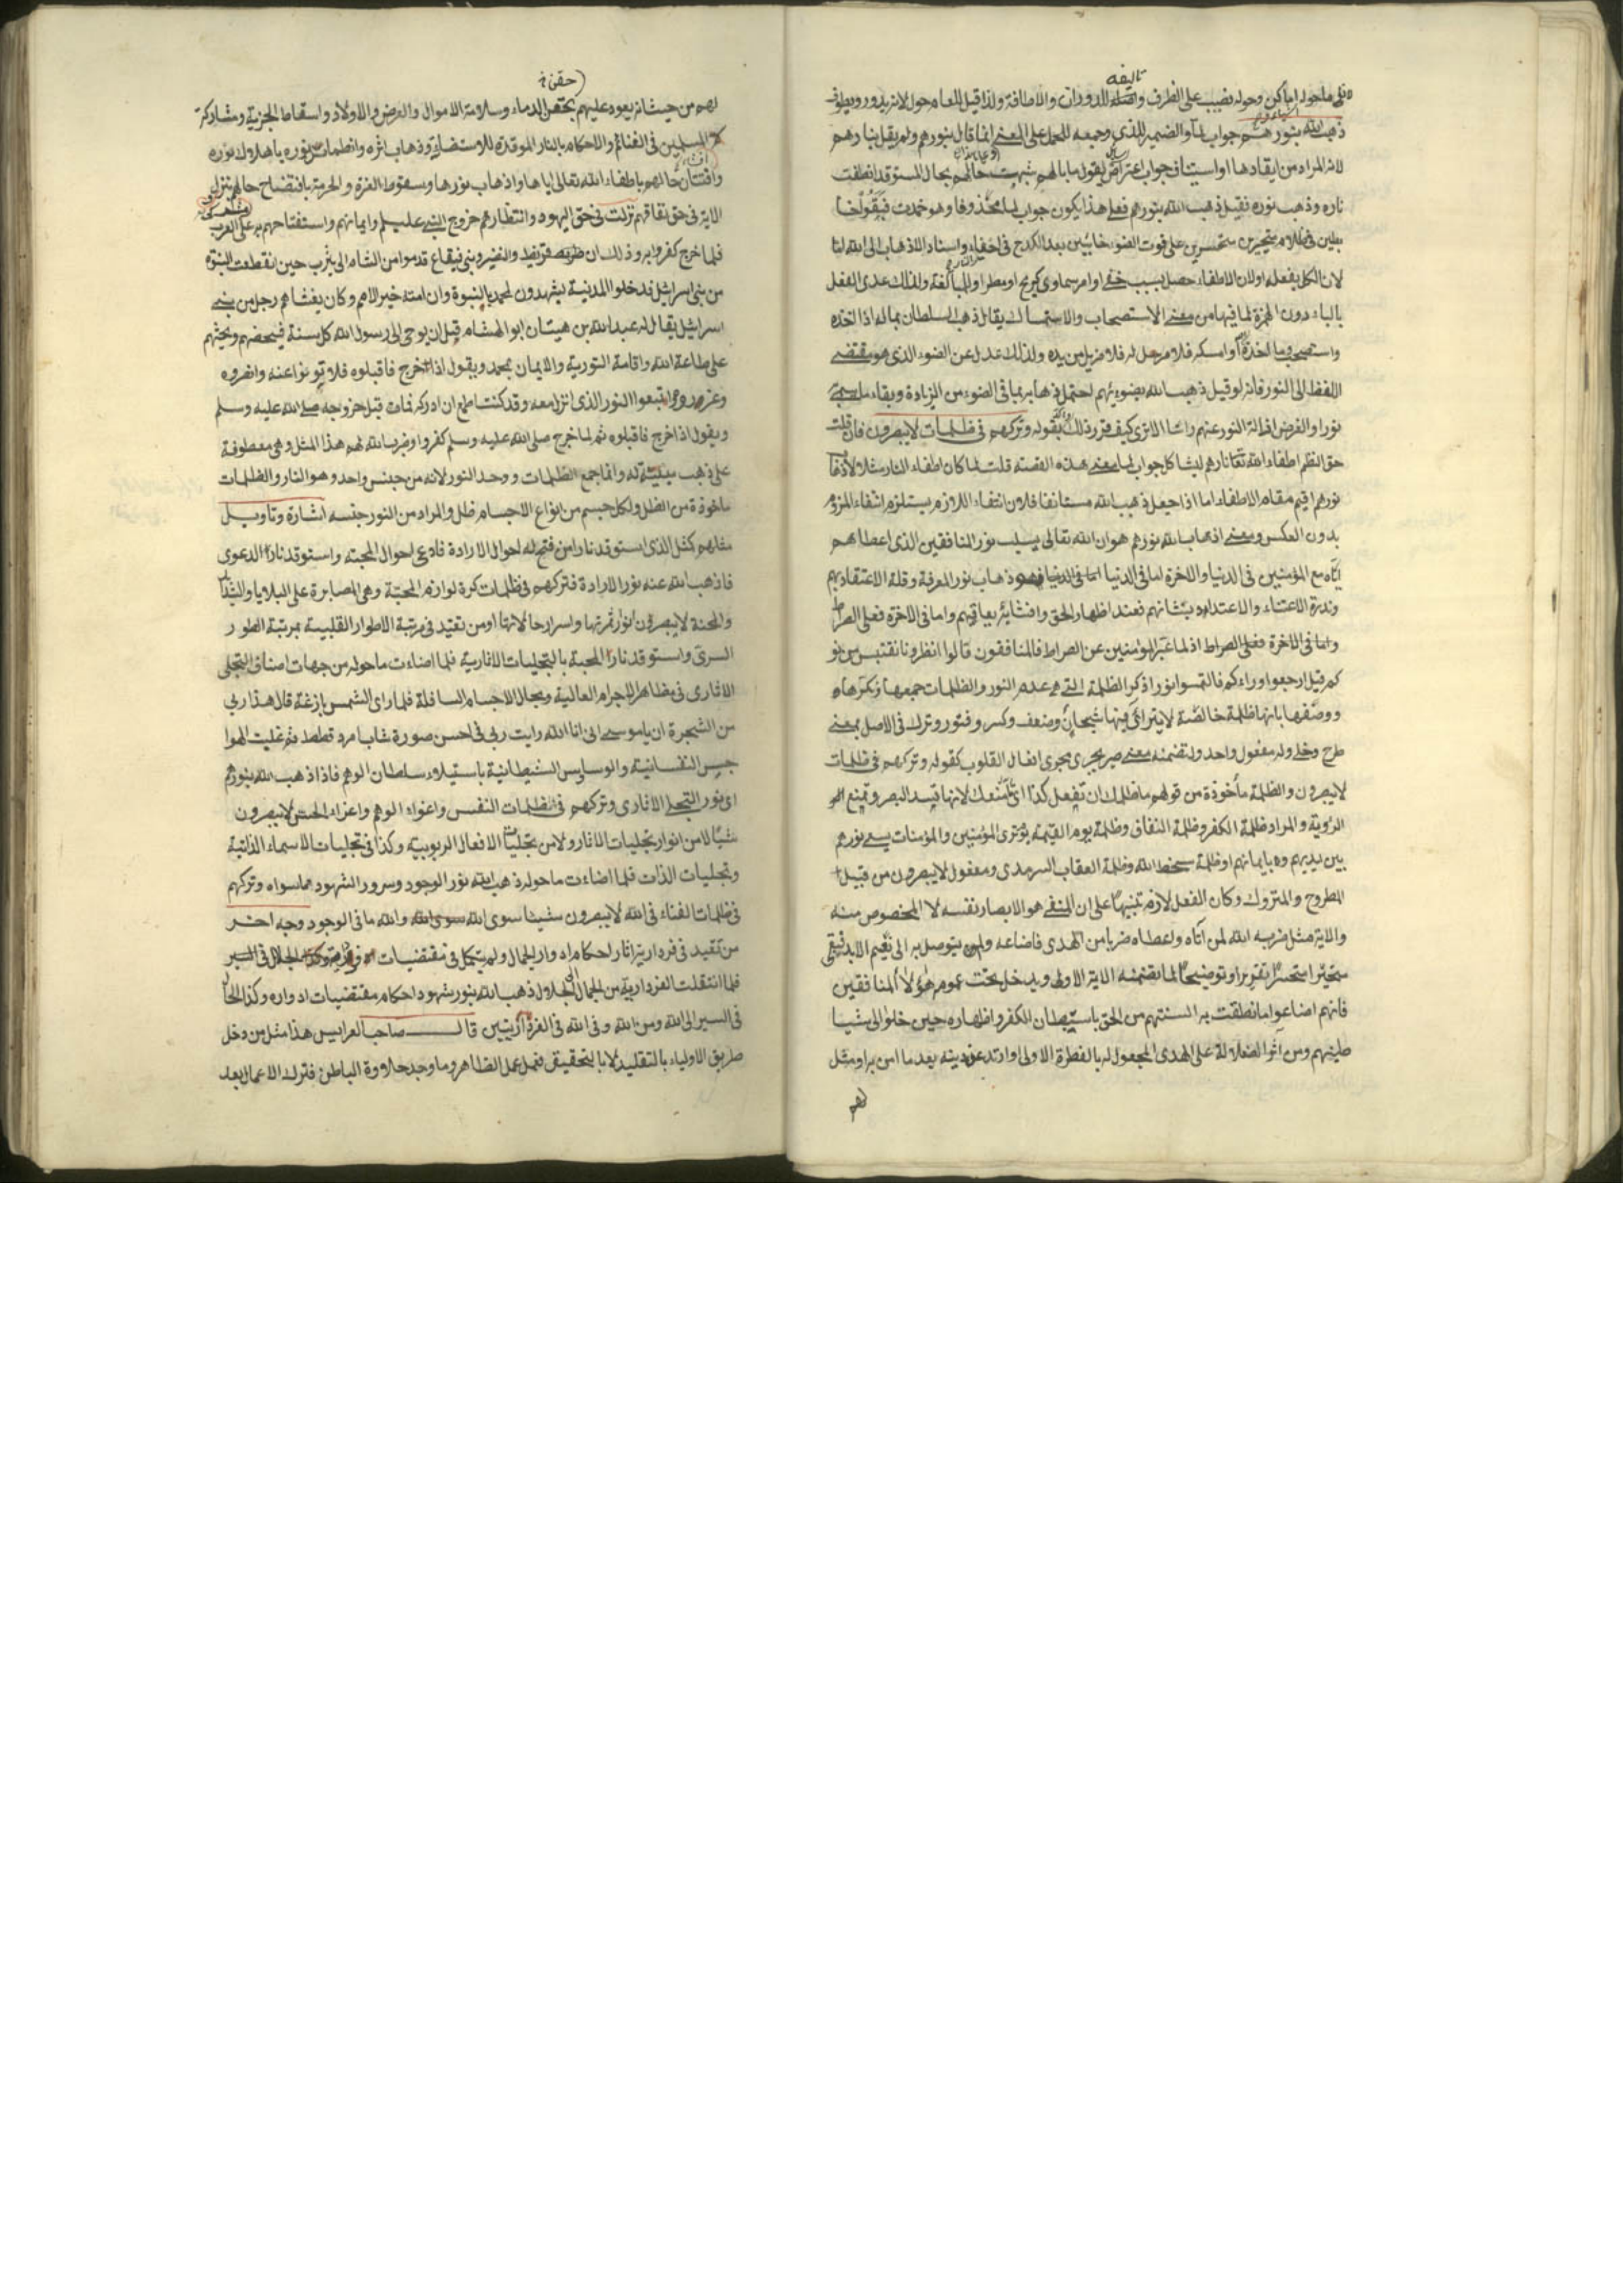 تاليفه
ما حوله اماكن وحوله نصب على الظرف للدوران والاطافة ولذا قيل للعام حول لانه يدور ويطوف
ذهب الله بنورهم جواب لما والضمير للذي وجمعه للحمل على المعنى انما قال بنورهم ولم يقل بنارهم
لانه المراد من ايقادها او استيناف جواب اعتراض يقول ما بالهم شبهت حالهم بحال المستوقد انطفت
ناره وذهب نوره فقيل ذهب الله بنورهم فعلى هذا يكون جواب لما محذوفا وهو خمدت فبقوا خا
بطين في ظلام متحيرين متحسرين على فوت الضوء خائبين بعد الكدح في احياء واسناد الاذهاب الى الله اما
لان الكل بفعله او لان الاطفاء حصل بسبب خفي او امر سماوي كريح او مطر او للمبالغة ولذلك عدى الفعل
بالباء دون الهمزة لما فيها من معنى الاستصحاب والاستمساك يقال ذهب السلطان بماله اذا اخذه
وما اخذه الله وامسكه فلا مرسل له فلا مزيل من يده ولذلك عدل عن الضوء الذي هو مقتضى
اللفظ الى النور فانه لو قيل ذهب الله بضوئهم احتمل ذهابه بما في الضوء من الزيادة وبقاء ما يسمى
نورا والغرض ازالة النور عنهم راسا الا ترى كيف قرر ذلك بقوله وتركهم في ظلمات لا يبصرون فان قلت
حق النظم اطفاء الله تعالى نارهم ليشاكل جواب لما معنى هذه القصة قلت لما كان اطفاء النار مثلا لاذهاب
نورهم اقيم مقام الاطفاء اما اذا جعل ذهب الله مستانفا فلان انتفاء اللازم يستلزم انتفاء الملزوم
بدون العكس ومعنى اذهاب الله نورهم هو ان الله تعالى يسلب نور المنافقين الذي اعطاهم
اياه مع المؤمنين في الدنيا والاخرة اما في الدنيا فهو ذهاب نور المعرفة وقلة الاعتقاد بهم
وندرة الاعتناء والاعتداد بشانهم فعند اظهار الحق وافشائه يعاقبهم واما في الاخرة فعلى الصراط
واما في الاخرة فعلى الصراط اذ لما عبر المؤمنين عن الصراط فالمنافقون قالوا انظرونا نقتبس من نو
ركم قيل ارجعوا وراءكم فالتمسوا نورا ذكر الظلمة التي هي عدم النور والظلمات جمعها ونكرها
ووصفها بانها ظلمة خالصة لا يتراءى فيها شبحان وضعف وكسر وفتور وترك في الاصل بمعنى
طرح وخلى وله مفعول واحد ولتضمنه معنى صير يجري مجرى افعال القلوب كقوله وتركهم في ظلمات
لا يبصرون والظلمة مأخوذة من قولهم ما ظلمك ان تفعل كذا اي ما منعك لانها تسد البصر وتمنع
الرؤية والمراد ظلمة الكفر وظلمة النفاق وظلمة يوم القيمة يوم ترى المؤمنين والمؤمنات يسعى نورهم
بين يديهم وبايمانهم او ظلمة سخط الله وظلمة العقاب السرمدي ومفعول لا يبصرون من قبيل
المطروح والمتروك وكان الفعل لازم تنبيها على ان المنفي هو الابصار نفسه لا المخصوص منه
والاية مثل ضربه الله لمن آتاه واعطاه ضربا من الهدى فاضاعه ولم يتوصل به الى نعيم الابد فبقي
متحيرا متحسرا تقريرا وتوضيحا لما تضمنه الاية الاولى ويدخل تحت عموم هؤلاء المنافقين
فانهم اضاعوا ما نطقت به السنتهم من الحق باستبطان الكفر واظهاره حين خلوا الى شيا
طينهم ومن آثر الضلالة على الهدى المجعول له بالفطرة الاولى وارتد عن دينه بعد ما امن به او مثل
لهم
حقن
لهم من حيث انه يعود عليهم بحقن الدماء وسلامة الاموال والعرض والاولاد واسقاط الجزية ومشاركة
المسلمين في الغنائم والاحكام بالنار الموقدة للاستضاءة وذهاب اثره وانطماس نوره باهلاك نوره
وافشاء حالهم باطفاء الله تعالى اياها واذهاب نورها وسقوط العزة والحرمة بافتضاح حالهم نزل
الاية في حق نفاقهم نزلت في حق اليهود وانتظارهم خروج النبي عليه السلم وايمانهم واستفتاحهم به على العرب
فلما خرج كفروا به وذلك ان قريظة والنضير وبني قينقاع قدموا من الشام الى يثرب حين انقطعت النبوة
من بني اسرائيل فدخلوا المدينة يشهدون لمحمد بالنبوة وان امته خير الامم وكان يغشاهم رجل من بني
اسرائيل يقال له عبد الله بن هيتان ابو الهشام قبل ان يوحى الى رسول الله كل سنة فيحضهم ويحثهم
على طاعة الله واقامة التورية والايمان بمحمد ويقول اذا خرج فاقبلوه فلا تفرقوا عنه وانصروه
واتبعوا النور الذي انزل معه وقد كنت اطمع ان ادركه فمات قبل خروجه صلى الله عليه وسلم
ويقول اذا خرج فاقبلوه ثم لما خرج صلى الله عليه وسلم كفروا وضرب الله لهم هذا المثل وهي معطوفة
على ذهب مبينة له وانما جمع الظلمات ووحد النور لانه من جنس واحد وهو النار والظلمات
ماخوذة من الظل ولكل جسم من انواع الاجسام ظل والمراد من النور جنسه اشارة وتاويل
مثلهم كمثل الذي استوقد نارا من فتح له احوال الارادة فادعى احوال المحبة واستوقد نار الدعوى
فاذهب الله عنه نور الارادة فتركهم في ظلمات كرة لوازم المحبة وهي المصابرة على البلايا والشدائد
والمحنة لا يبصرون انوار ثمرتها واسرار حالاتها او من تقيد في مرتبة الاطوار القلبية بمرتبة الطور
السري واستوقد نار المحبة بالتجليات الاثارية فلما اضاءت ما حوله من جهات اصناف التجلي
الاثاري في مظاهر الاجرام العالية ومجال الاجسام السافلة فلما راى الشمس بازغة قال هذا ربي
من الشجرة ان يا موسى اني انا الله رايت ربي في احسن صورة شاب امرد قطط ثم غلبت الهوا
جس النفسانية والوساوس الشيطانية باستيلاء سلطان الوهم فاذا ذهب الله بنورهم
اي نور التجلي الاثاري وتركهم في ظلمات النفس واغواء الوهم واغراء الحس لا يبصرون
شيئا لا من انوار تجليات الاثار ولا من تجليات الافعال الربوبية وكذا في تجليات الاسماء الذاتية
وتجليات الذات فلما اضاءت ما حوله ذهب الله نور الوجود وسرور الشهود عما سواه وتركهم
في ظلمات الفناء في الله لا يبصرون شيئا سوى الله والله ما في الوجود وجه اخر
من تقيد في فردارية اثار احكام ادوار الجمال ولم يتكمل في مقتضيات الجلال في السير
فلما انتقلت الفردارية من الجمال الى الجلال ذهب الله بنور شهود احكام مقتضيات ادواره وكذا الحال
في السير الى الله ومن الله وفي الله في الفردارتين قال صاحب العرايس هذا مثل من دخل
طريق الاولياء بالتقليد لا بالتحقيق فعمل عمل الظاهر وما وجد حلاوة الباطن فترك الاعمال بعد